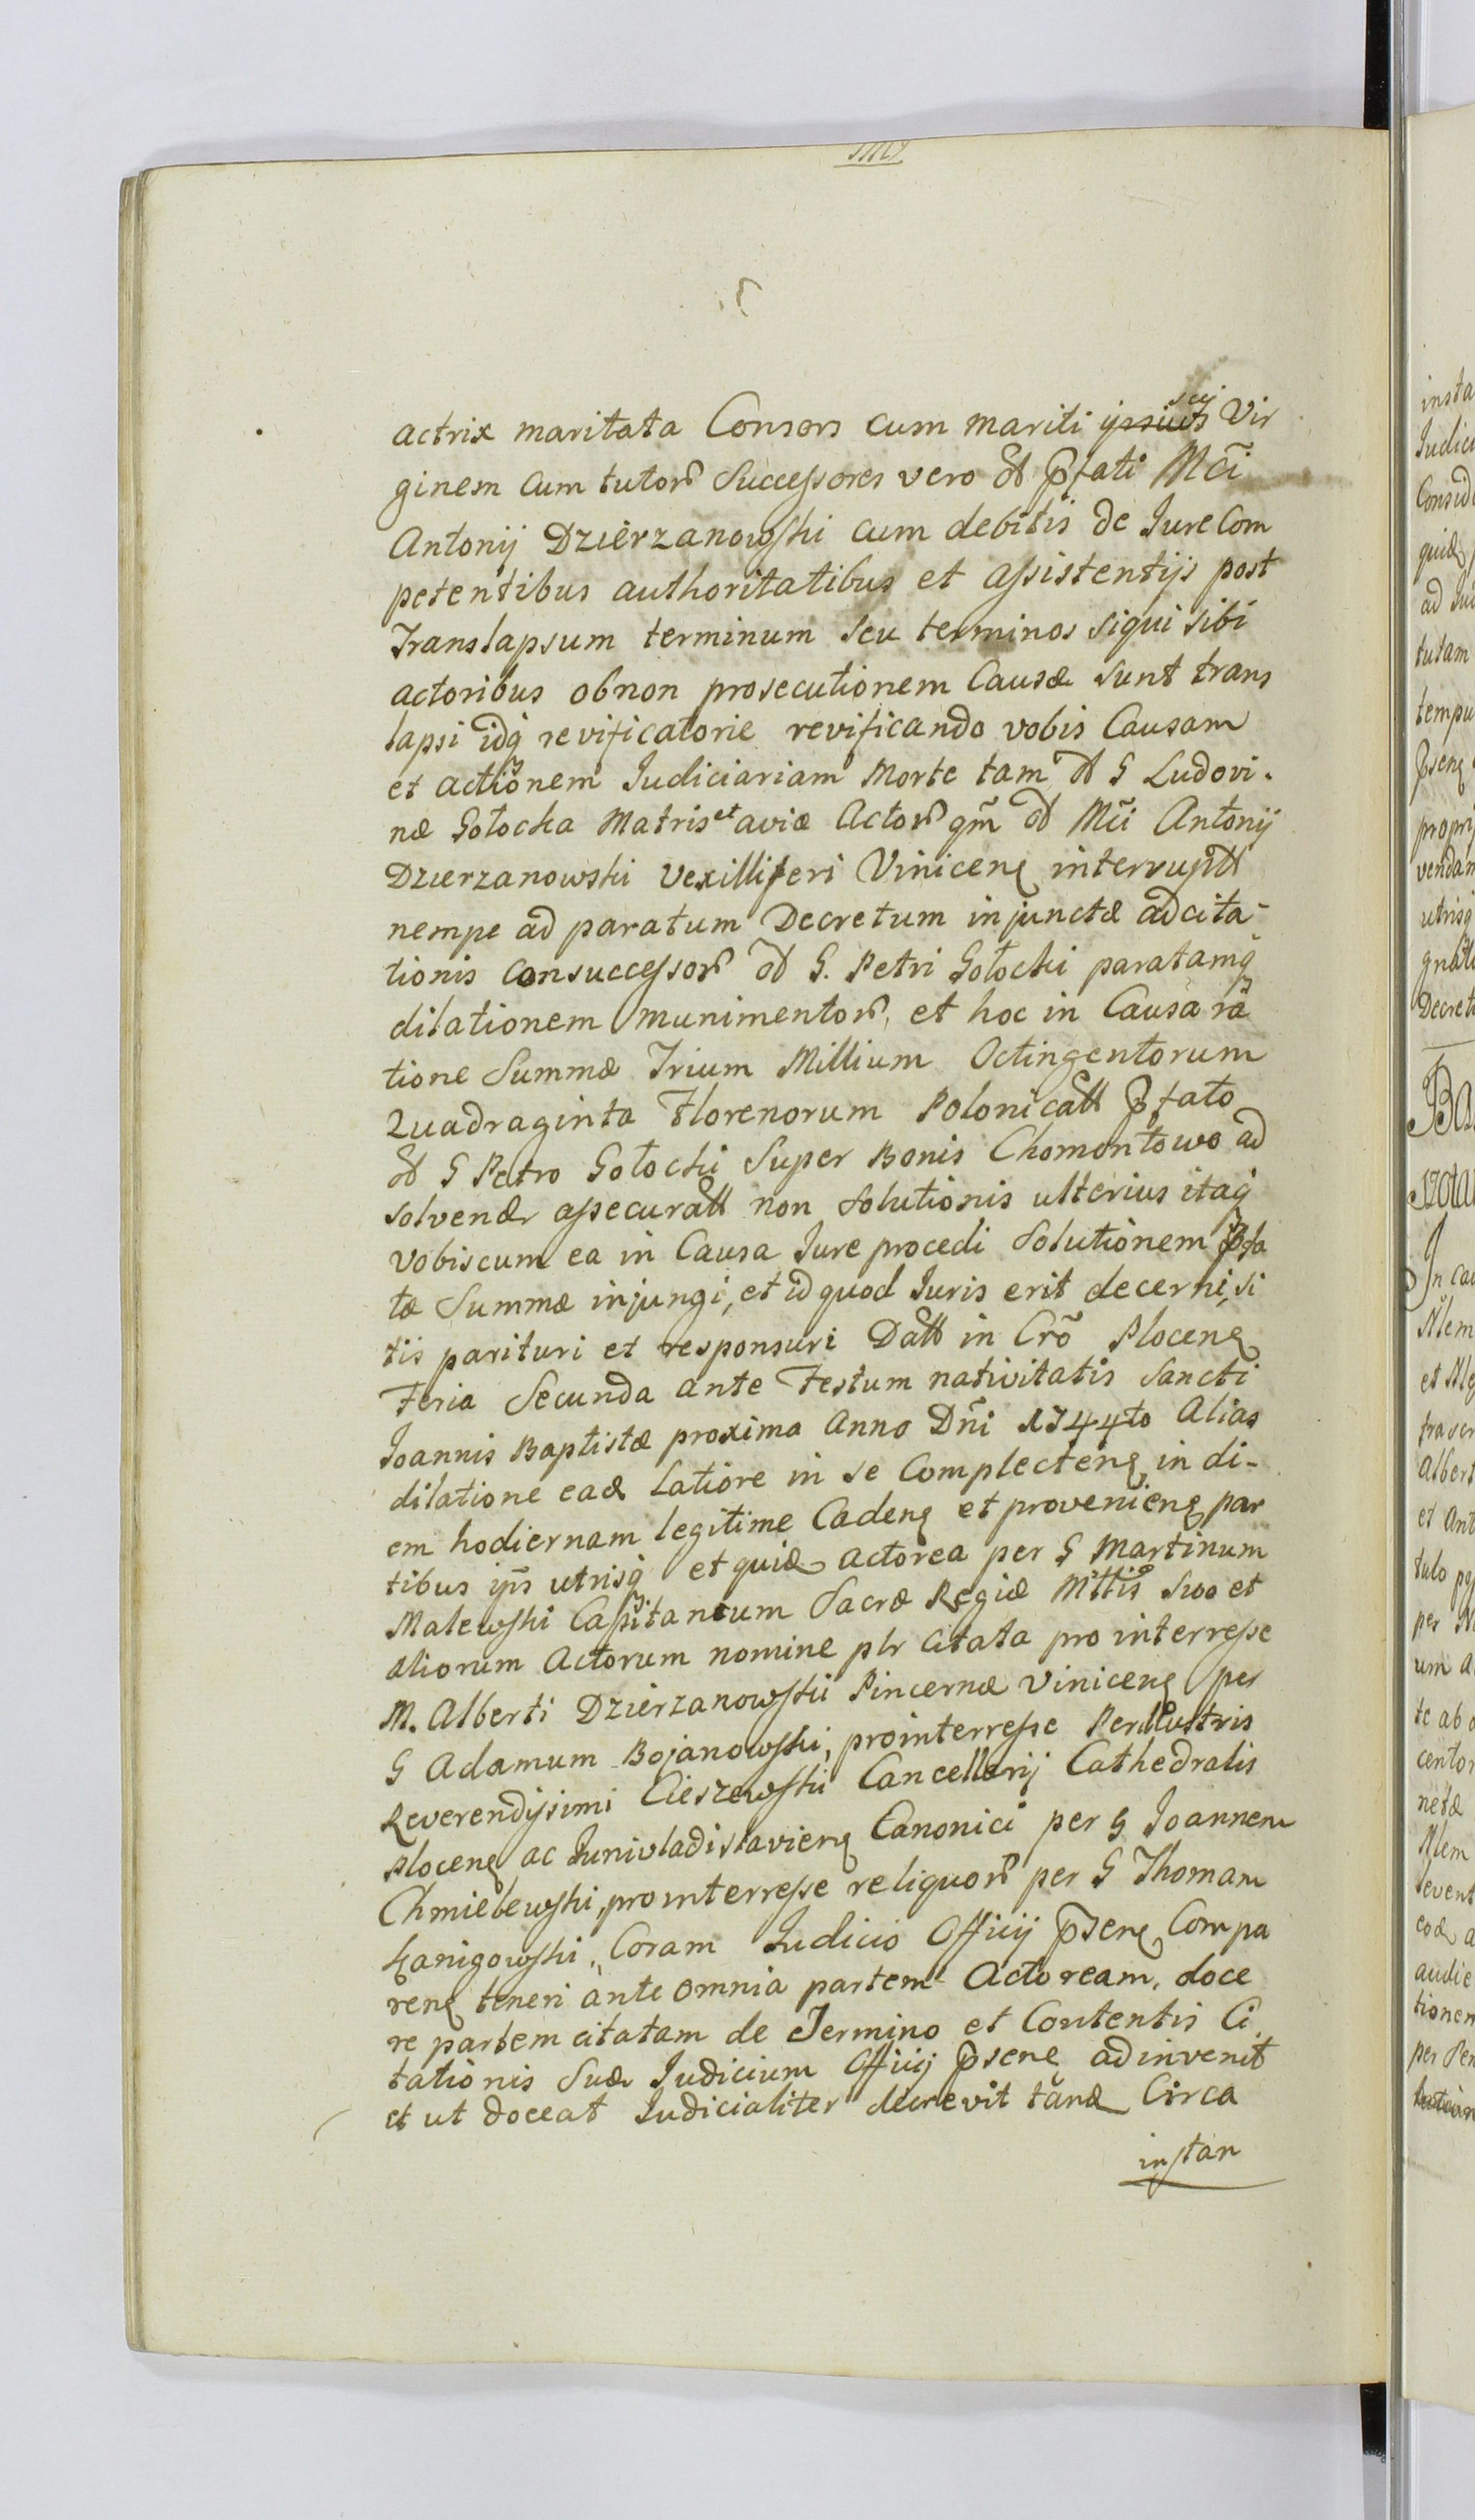 actrix maritata Consors cum mariti ipsius scij Vir
ginem cum tutoř Successores vero olt p̃fati Mc̃i
Antonij Dzierzanowski cum debitis de Jure Com
petentibus authoritatibus et assistentijs post
Translapsum terminum seu terminos siqui sibi
actoribus obnon prosecutionem Causæ sunt trans
lapsi idq́ revificatorie revificando vobis Causam
et actionem Judiciariam Morte tam olt G Ludovi-
næ Gołocka Matris et aviæ Actoř qm̃ olt Mc̃i Antonij
Dzierzanowski Vexilliferi Viniceng interruptt
nempe ad paratum Decretum injunctæ adcita-
tionis consuccessoř olt G. Petri Gołocki paratamq́
dilationem munimentoř, et hoc in Causa ra
tione Summæ Trium Millium Octingentorum
Quadraginta Florenorum Polonicatt p̃fato
olt G Petro Gołocki Super Bonis Chomontowo ad
solvend assecuratt non Solutionis ulterius itaq́
vobiscum ea in Causa Jure procedi Solutionem p̃fa
tæ Summæ injungi, et id quod Juris erit decerni, si
tis parituri et responsuri Datt in Crõ Ploceng
Feria Secunda ante Festum nativitatis Sancti
Joannis Baptistæ proxima Anno Dñi 1744to Alias
dilatione ead Latiore in se Complecteng in di-
em hodiernam legitime Cadeng et provenieng par
tibus ip̃s utrisq́ et quid actorea per G Martinum
Malewski Capitaneum Sacræ Regiæ Mttis suo et
aliorum Actorum nomine plr Citata pro interresse
M. Alberti Dzierzanowski Pincernæ Viniceng per
G Adamum Bojanowski, prointerresse Perillustris
Reverendissimi Cieszewski Cancellarij Cathedralis
Ploceng ac Junivladislavieng Canonici per G Joannem
Chmielewski, prointerresse reliquoř per G Thomam
Łanigowski, Coram Judicio Officij p̃seng Compa
reng teneri ante omnia partem Actoream, doce
re partem citatam de Termino et Contentis Ci
tationis Suæ Judicium Officij p̃seng adinvenit
et ut doceat Judicialiter decrevit tand Circa
instan